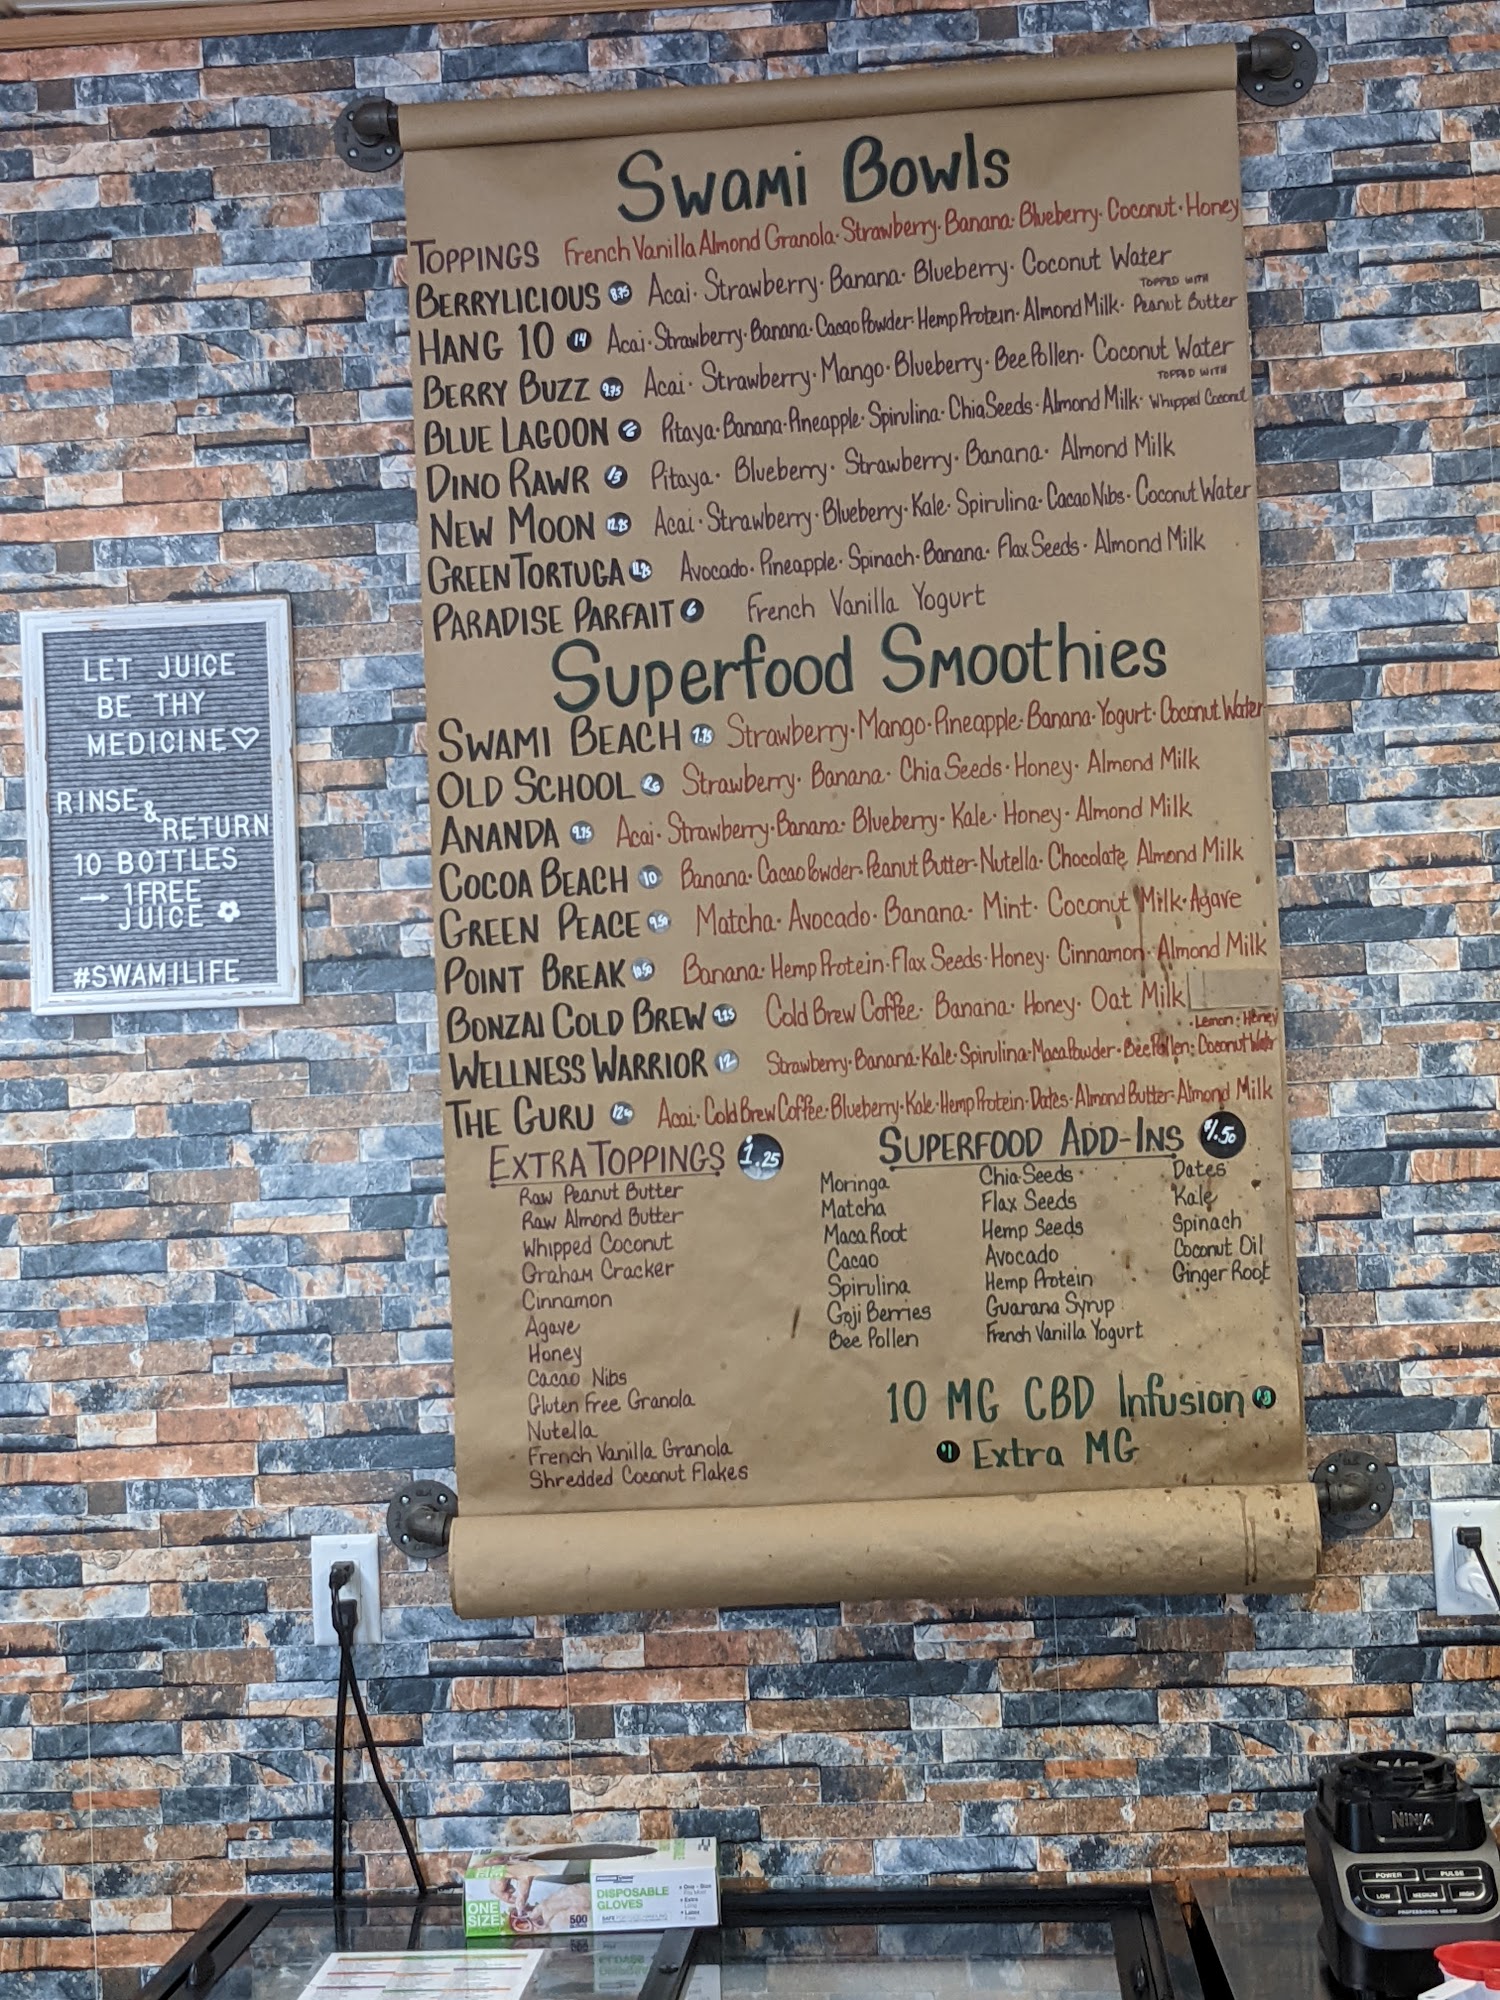 Swami Bowls
TOPPINGS French Vanilla Almond Granola · Strawberry · Banana · Blueberry · Coconut · Honey
BERRYLICIOUS 8.75 Acai · Strawberry · Banana · Blueberry · Coconut Water
TOPPED WITH
HANG 10 14 Acai · Strawberry · Banana · Cacao Powder · Hemp Protein · Almond Milk · Peanut Butter
BERRY BUZZ 9.75 Acai · Strawberry · Mango · Blueberry · Bee Pollen · Coconut Water
TOPPED WITH
BLUE LAGOON Pitaya · Banana · Pineapple · Spirulina · Chia Seeds · Almond Milk · Whipped Coconut
DINO RAWR 13 Pitaya · Blueberry · Strawberry · Banana · Almond Milk
NEW MOON 12.25 Acai · Strawberry · Blueberry · Kale · Spirulina · Cacao Nibs · Coconut Water
GREEN TORTUGA Avocado · Pineapple · Spinach · Banana · Flax Seeds · Almond Milk
PARADISE PARFAIT 6 French Vanilla Yogurt
Superfood Smoothies
SWAMI BEACH 7.75 Strawberry · Mango · Pineapple · Banana · Yogurt · Coconut Water
OLD SCHOOL Strawberry · Banana · Chia Seeds · Honey · Almond Milk
ANANDA 9.75 Acai · Strawberry · Banana · Blueberry · Kale · Honey · Almond Milk
COCOA BEACH 10 Banana · Cacao Powder · Peanut Butter · Nutella · Chocolate Almond Milk
GREEN PEACE 9.50 Matcha · Avocado · Banana · Mint · Coconut Milk · Agave
POINT BREAK 10.50 Banana · Hemp Protein · Flax Seeds · Honey · Cinnamon · Almond Milk
BONZAI COLD BREW 9.25 Cold Brew Coffee · Banana · Honey · Oat Milk
· Lemon · Honey
WELLNESS WARRIOR 12 Strawberry · Banana · Kale · Spirulina · Maca Powder · Bee Pollen · Coconut Water
THE GURU Acai · Cold Brew Coffee · Blueberry · Kale · Hemp Protein · Dates · Almond Butter · Almond Milk
EXTRA TOPPINGS 1.25
Raw Peanut Butter
Raw Almond Butter
Whipped Coconut
Graham Cracker
Cinnamon
Agave
Honey
Cacao Nibs
Gluten Free Granola
Nutella
French Vanilla Granola
Shredded Coconut Flakes
SUPERFOOD ADD-INS $1.50
Moringa
Matcha
Maca Root
Cacao
Spirulina
Goji Berries
Bee Pollen
Chia Seeds
Flax Seeds
Hemp Seeds
Avocado
Hemp Protein
Guarana Syrup
French Vanilla Yogurt
Dates
Kale
Spinach
Coconut Oil
Ginger Root
10 MG CBD Infusion
$1 Extra MG
LET JUICE
BE THY
MEDICINE♡
RINSE
&
RETURN
10 BOTTLES
→ 1 FREE
JUICE
#SWAMILIFE
ONE
SIZE
500
DISPOSABLE
GLOVES
NINJA
POWER PULSE
LOW MEDIUM HIGH